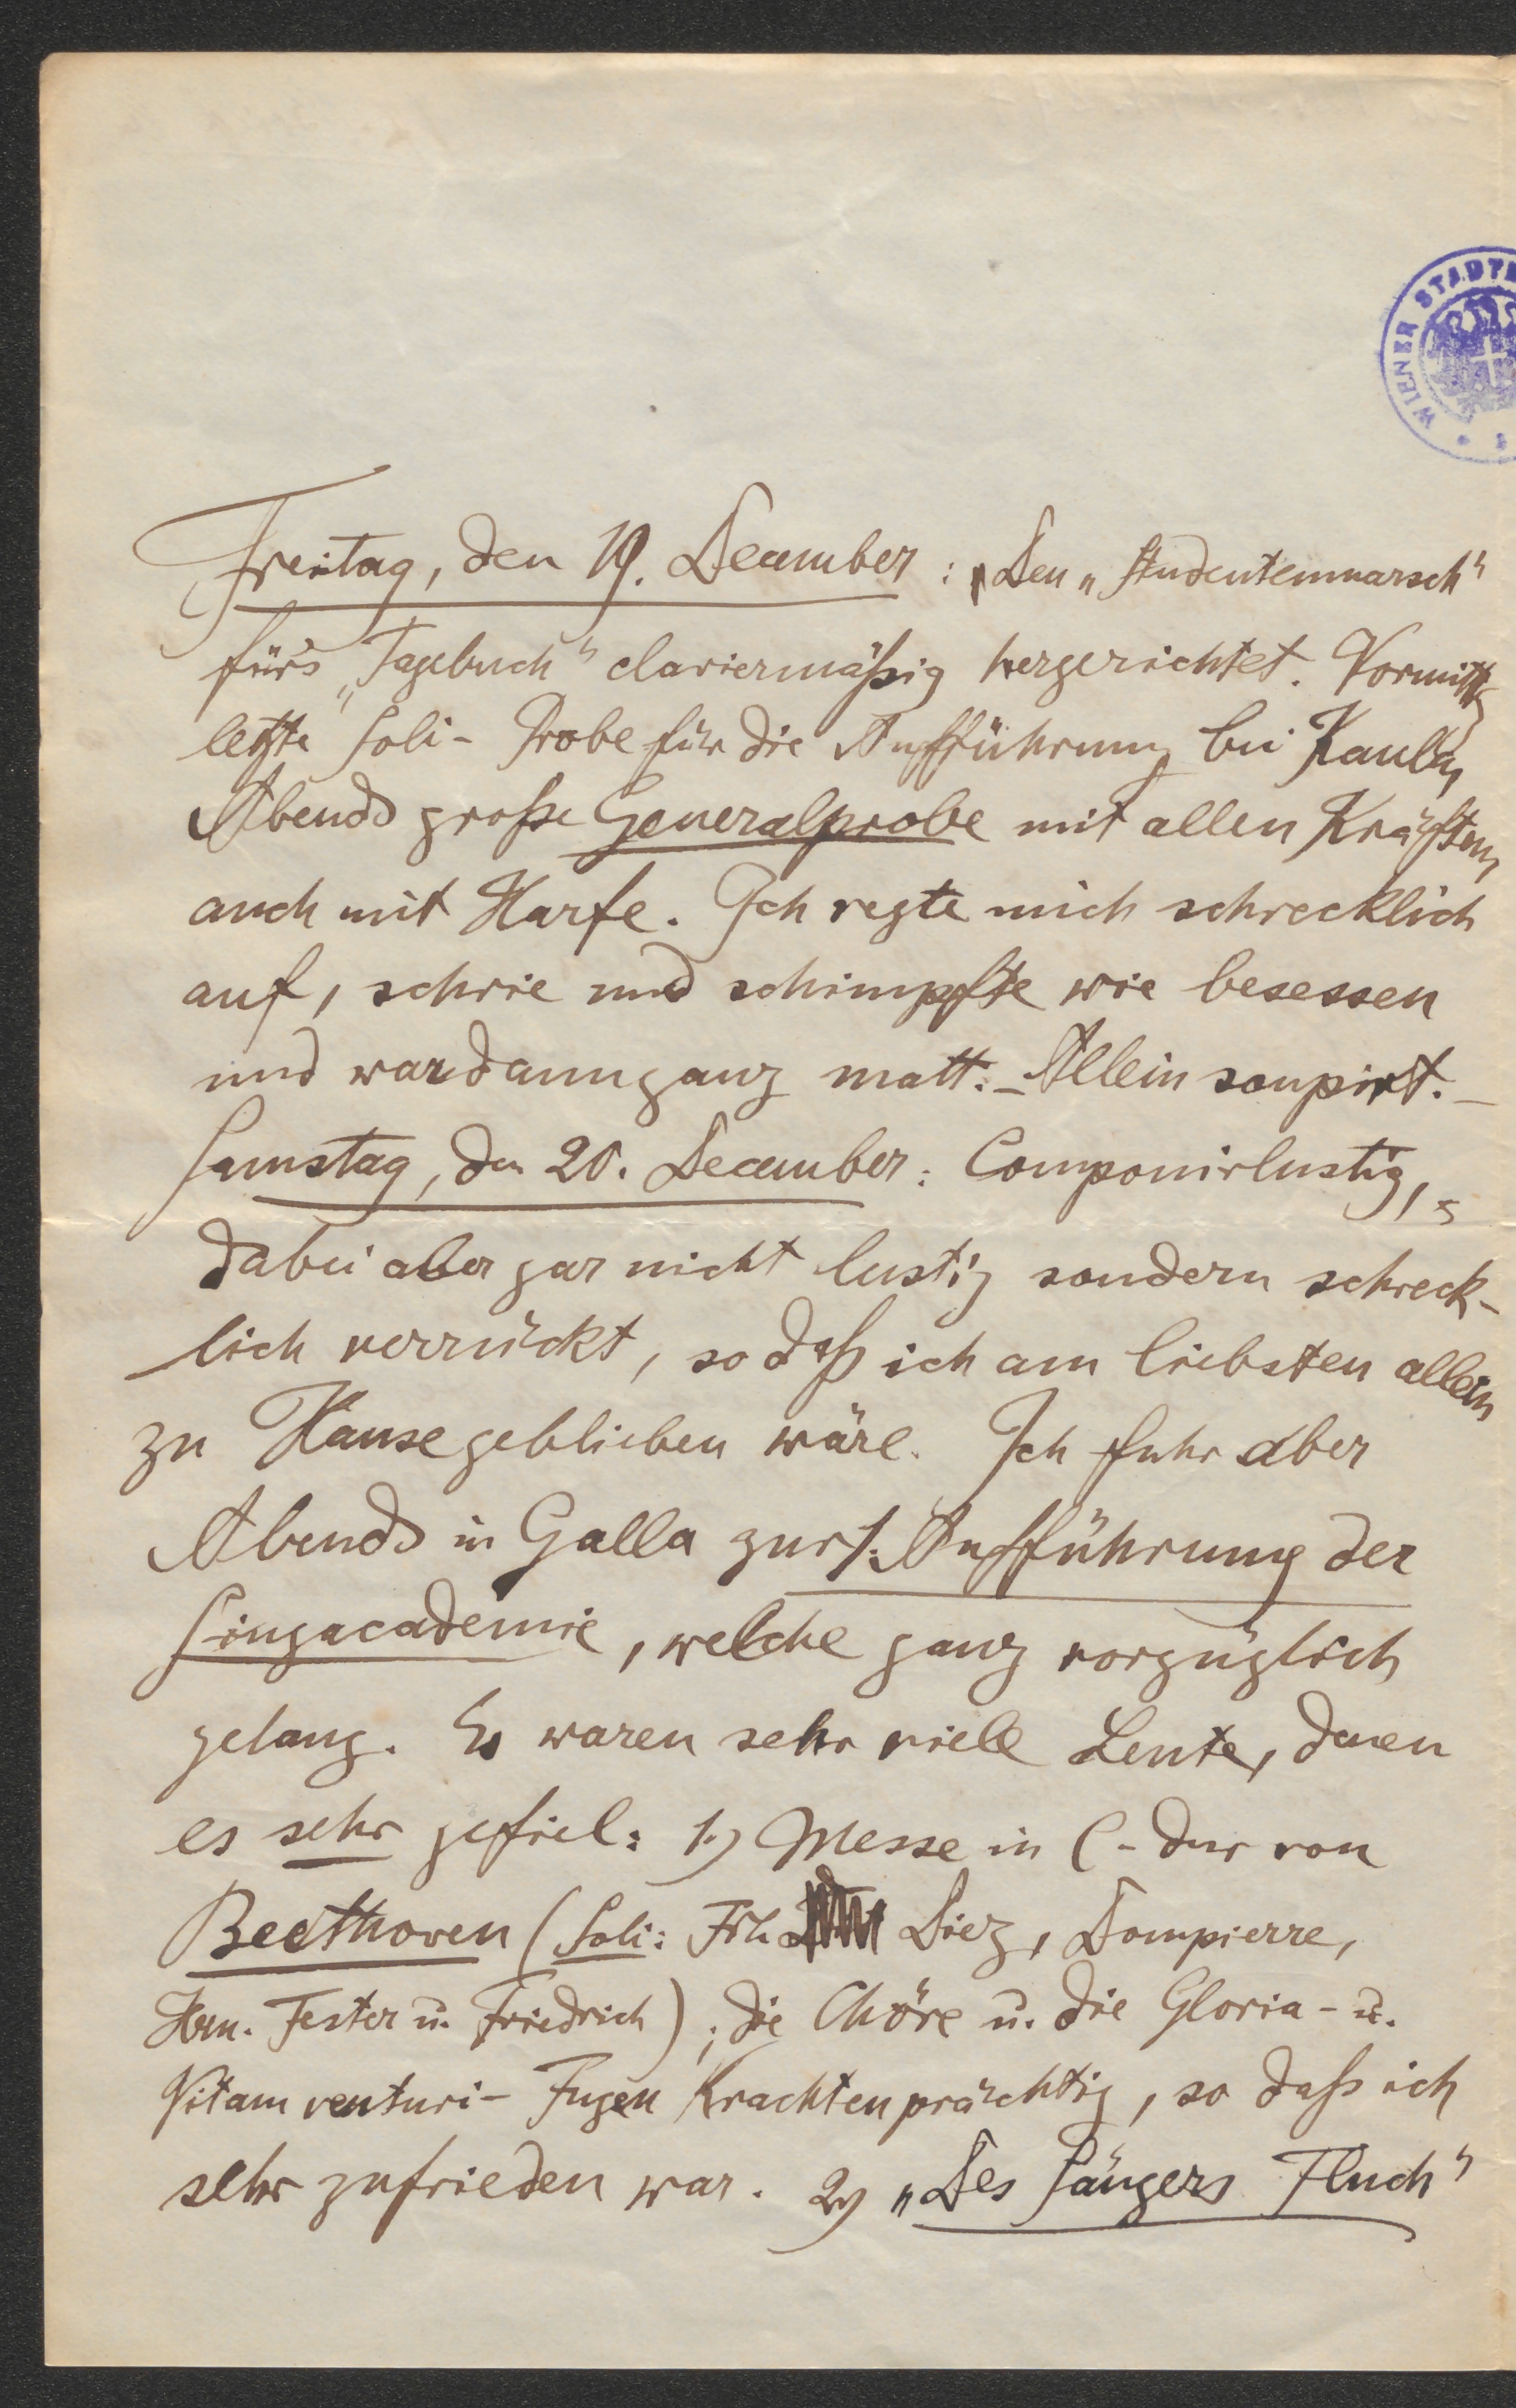 WIENER STADT
Freitag, den 19. December: „Den „Studentenmarsch“
für's „Tagebuch“ claviermäßig hergerichtet. Vormittg
letzte Soli-Probe für die Aufführung bei Kaulla,
Abends große Generalprobe mit allen Kräften,
auch mit Harfe. Ich regte mich schrecklich
auf, schrie und schimpfte wie besessen
und war dann ganz matt. – Allein soupirt. –
Samstag, den 20. December: Componirlustig,
dabei aber gar nicht lustig sondern schreck-
lich verrückt, so daß ich am liebsten allein
zu Hause geblieben wäre. Ich fuhr aber
Abends in Galla zur 1. Aufführung der
Singacademie, welche ganz vorzüglich
gelang. Es waren sehr viele Leute, denen
es sehr gefiel: 1.) Messe in C-dur von
Beethoven (Soli: Frl. Diez, Dompierre,
Hrn. Fester u. Friedrich); die Chöre u. die Gloria- u.
Vitam venturi-Fugen krachten prächtig, so daß ich
sehr zufrieden war. 2) „Des Sängers Fluch“